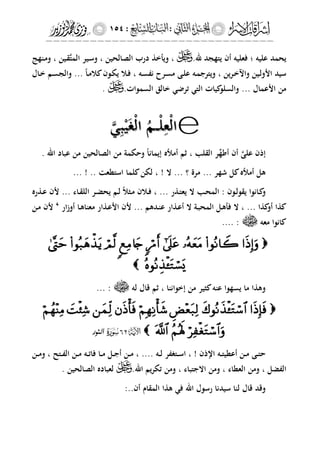 إشراقات الإصلاح : الباب السابع : ١٥٤
يحمد عليه ، فعليه أن يتهجد لله ، ويأخذ درب الصالحين ، وسير المتَّقين ، ومنهج
سيد الأولين والآخرين ، ويترجمه على مسرح نفسه ، فلا يكون كلاماً ... والجسم خال
من الأعمال ... والسلوكيات التي ترضي خالق السموات .
الْعِلْمُ الْغَيْبِيُّ
إذن عليَّ أن أطهِّر القلب ، ثم أملأه إيماناً وحكمة من الصالحين من عباد الله .
هل أملأه كل شهر ... مرة ؟ ... لا ! ، لكن كلما استطعت .. ! ...
وكانوا يقولون : المحب لا يعتذر ... ، فلان مثلاً لم يحضر اللقاء ... لأن عذره
كذا أوكذا ... ، لا فأهل المحبة لا أعذار عندهم ... لأن الأعذار معناها أوزار ، لأن من
كانوا معه : ....
﴿ وَإِذَا كَانُوا مَعَهُ عَلَى أَمْرٍ جَامِعٍ لَّمْ يَذْهَبُوا حَتَّى
يَسْتَأْذِنُوهُ ﴾
وهذا ما يسهوا عنه كثير من إخواننا ، ثم قال له : ...
﴿ فَإِذَا اسْتَأْذَنُوكَ لِبَعْضِ شَأْنِهِمْ فَأْذَن لِّمَن شِئْتَ مِنْهُمْ
وَاسْتَغْفِرْ لَهُمُ اللَّهَ ﴾ الآية ٦٢ سورة النور
حتى من أعطيته الإذن ! ، استغفر له .... ، من أجل ما فاته من الفتح ، ومن
الفضل ، ومن العطاء ، ومن الاجتباء ، ومن تكريم الله لعباده الصالحين .
وقد قال لنا سيدنا رسول الله في هذا المقام أن..: